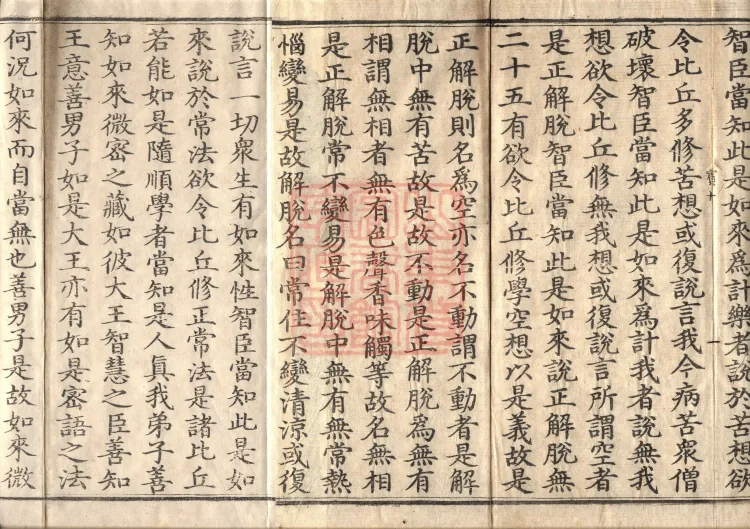 智臣當知此是如來為計樂者說於苦想欲
令比丘多修苦想或復說言我今病苦衆僧
破壞智臣當知此是如來為計我者說無我
想欲令比丘修無我想或復說言所謂空者
是正解脫智臣當知此是如來說正解脫無
二十五有欲令比丘修學空想以是義故是
正解脫則名為空亦名不動謂不動者是解
脫中無有苦故是故不動是正解脫為無有
相謂無相者無有色聲香味觸等故名無相
是正解脫常不變易是解脫中無有無常熱
惱變易是故解脫名曰常住不變清涼或復
說言一切衆生有如來性智臣當知此是如
來說於常法欲令比丘修正常法是諸比丘
若能如是隨順學者當知是人真我弟子善
知如來微密之藏如彼大王智慧之臣善知
王意善男子如是大王亦有如是密語之法
何況如來而自當無也善男子是故如來微